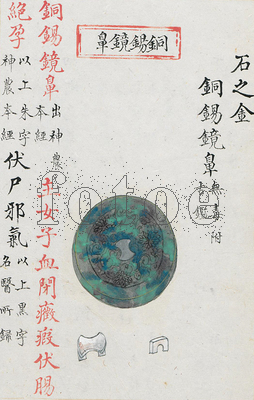 銅錫鏡鼻
石之金
銅錫鏡鼻 無毒附
古鑑
銅錫鏡鼻 出神農本經 主女子血閉癥瘕伏腸
絕孕 以上朱字神農本經 伏尸邪氣 以上黑字名醫所錄